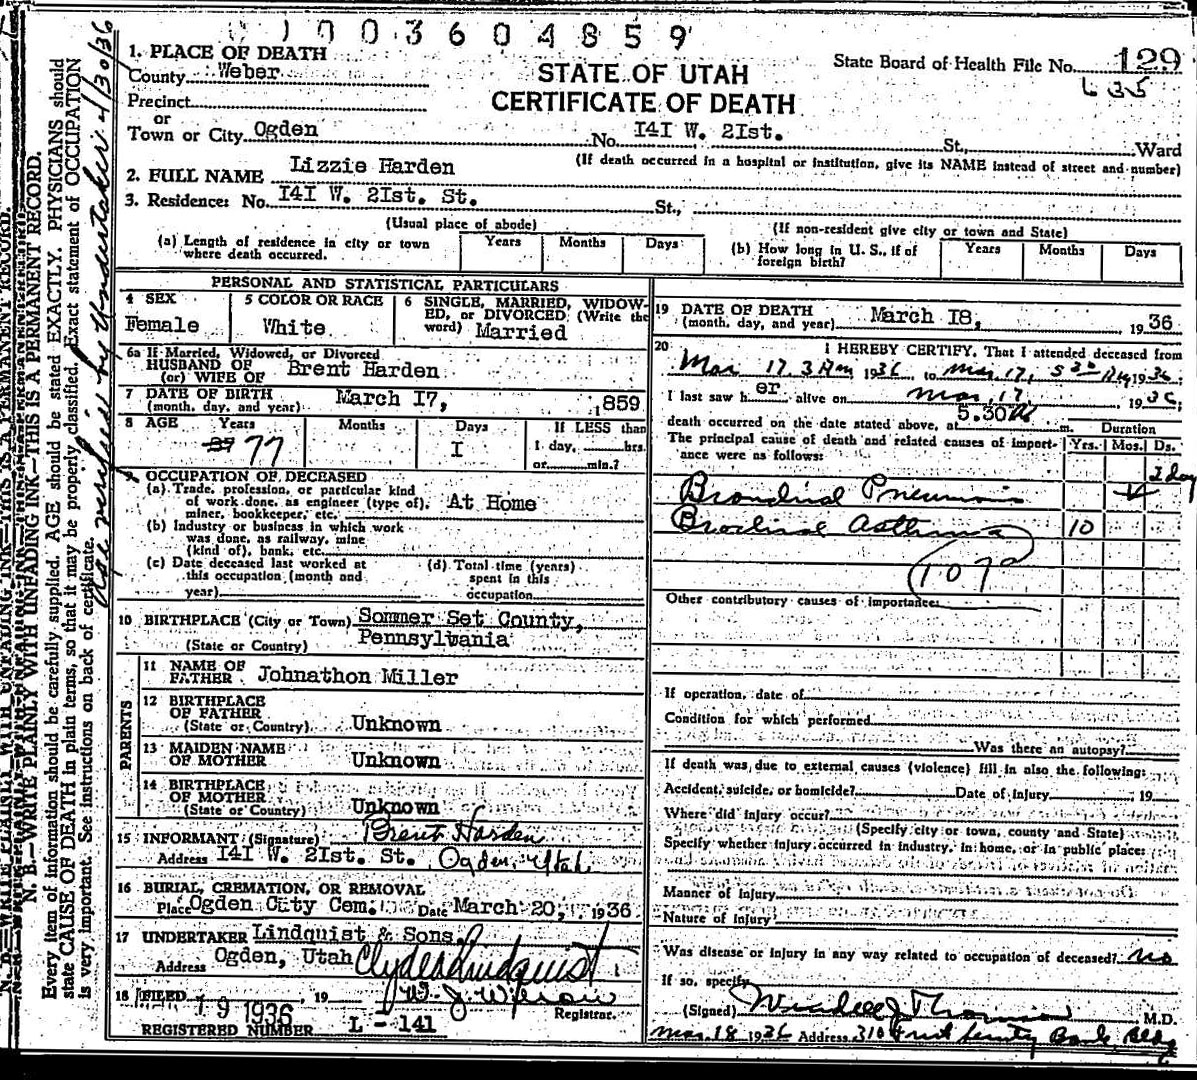 0 1 0 0 3 6 0 4 8 5 9
1. PLACE OF DEATH
County Weber
STATE OF UTAH
State Board of Health File No. 129
635
Precinct
CERTIFICATE OF DEATH
or
Town or City Ogden No. I4I W. 2Ist. St., Ward
(If death occurred in a hospital or institution, give its NAME instead of street and number)
2. FULL NAME Lizzie Harden
3. Residence: No. I4I W. 2Ist. St. St.,
(Usual place of abode) (If non-resident give city or town and State)
(a) Length of residence in city or town where death occurred. Years Months Days
(b) How long in U. S., if of foreign birth? Years Months Days
PERSONAL AND STATISTICAL PARTICULARS
4 SEX Female
5 COLOR OR RACE White
6 SINGLE, MARRIED, WIDOWED, or DIVORCED (Write the word) Married
6a If Married, Widowed, or Divorced
HUSBAND OF
(or) WIFE OF Brent Harden
7 DATE OF BIRTH
(month, day, and year) March I7, 1859
8 AGE Years 77 Months Days I
If LESS than
1 day, hrs.
or min.?
9 OCCUPATION OF DECEASED
(a) Trade, profession, or particular kind
of work done, as engineer (type of), At Home
miner, bookkeeper, etc.
(b) Industry or business in which work
was done, as railway, mine
(kind of), bank, etc.
(c) Date deceased last worked at
this occupation (month and
year)
(d) Total time (years)
spent in this
occupation
10 BIRTHPLACE (City or Town) Sommer Set County,
(State or Country) Pennsylvania
PARENTS
11 NAME OF
FATHER Johnathon Miller
12 BIRTHPLACE
OF FATHER
(State or Country) Unknown
13 MAIDEN NAME
OF MOTHER Unknown
14 BIRTHPLACE
OF MOTHER
(State or Country) Unknown
15 INFORMANT (Signature) Brent Harden
Address I4I W. 2Ist. St. Ogden, Utah
16 BURIAL, CREMATION, OR REMOVAL
Place Ogden City Cem. Date March 20, 1936
17 UNDERTAKER Lindquist & Sons
Address Ogden, Utah Clyde Lindquist
18 FILED 19 1936, 19
Registrar.
REGISTERED NUMBER L - 141
19 DATE OF DEATH
(month, day, and year) March I8, 1936
20 I HEREBY CERTIFY, That I attended deceased from
Mar 17 3 AM 1936 to Mar. 17, 5 30 1936
I last saw her alive on Mar. 17 1936;
death occurred on the date stated above, at 5.30 m. Duration
The principal cause of death and related causes of importance were as follows: Yrs. Mos. Ds.
Bronchial Pneumonia 2 day
Bronchial Asthma 10
107a
Other contributory causes of importance:
If operation, date of
Condition for which performed
Was there an autopsy?
If death was due to external causes (violence) fill in also the following:
Accident, suicide, or homicide? Date of injury , 19
Where did injury occur?
(Specify city or town, county and State)
Specify whether injury occurred in industry, in home, or in public place:
Manner of injury
Nature of injury
Was disease or injury in any way related to occupation of deceased? no
If so, specify
(Signed) Wendell J Thomson M.D.
Mar. 18 1936 Address 310 Bank Bldg
N. B.—WRITE PLAINLY WITH UNFADING INK—THIS IS A PERMANENT RECORD.
Every item of information should be carefully supplied. AGE should be stated EXACTLY. PHYSICIANS should
state CAUSE OF DEATH in plain terms, so that it may be properly classified. Exact statement of OCCUPATION
is very important. See instructions on back of certificate.
Age verified by Undertaker 4/30/36